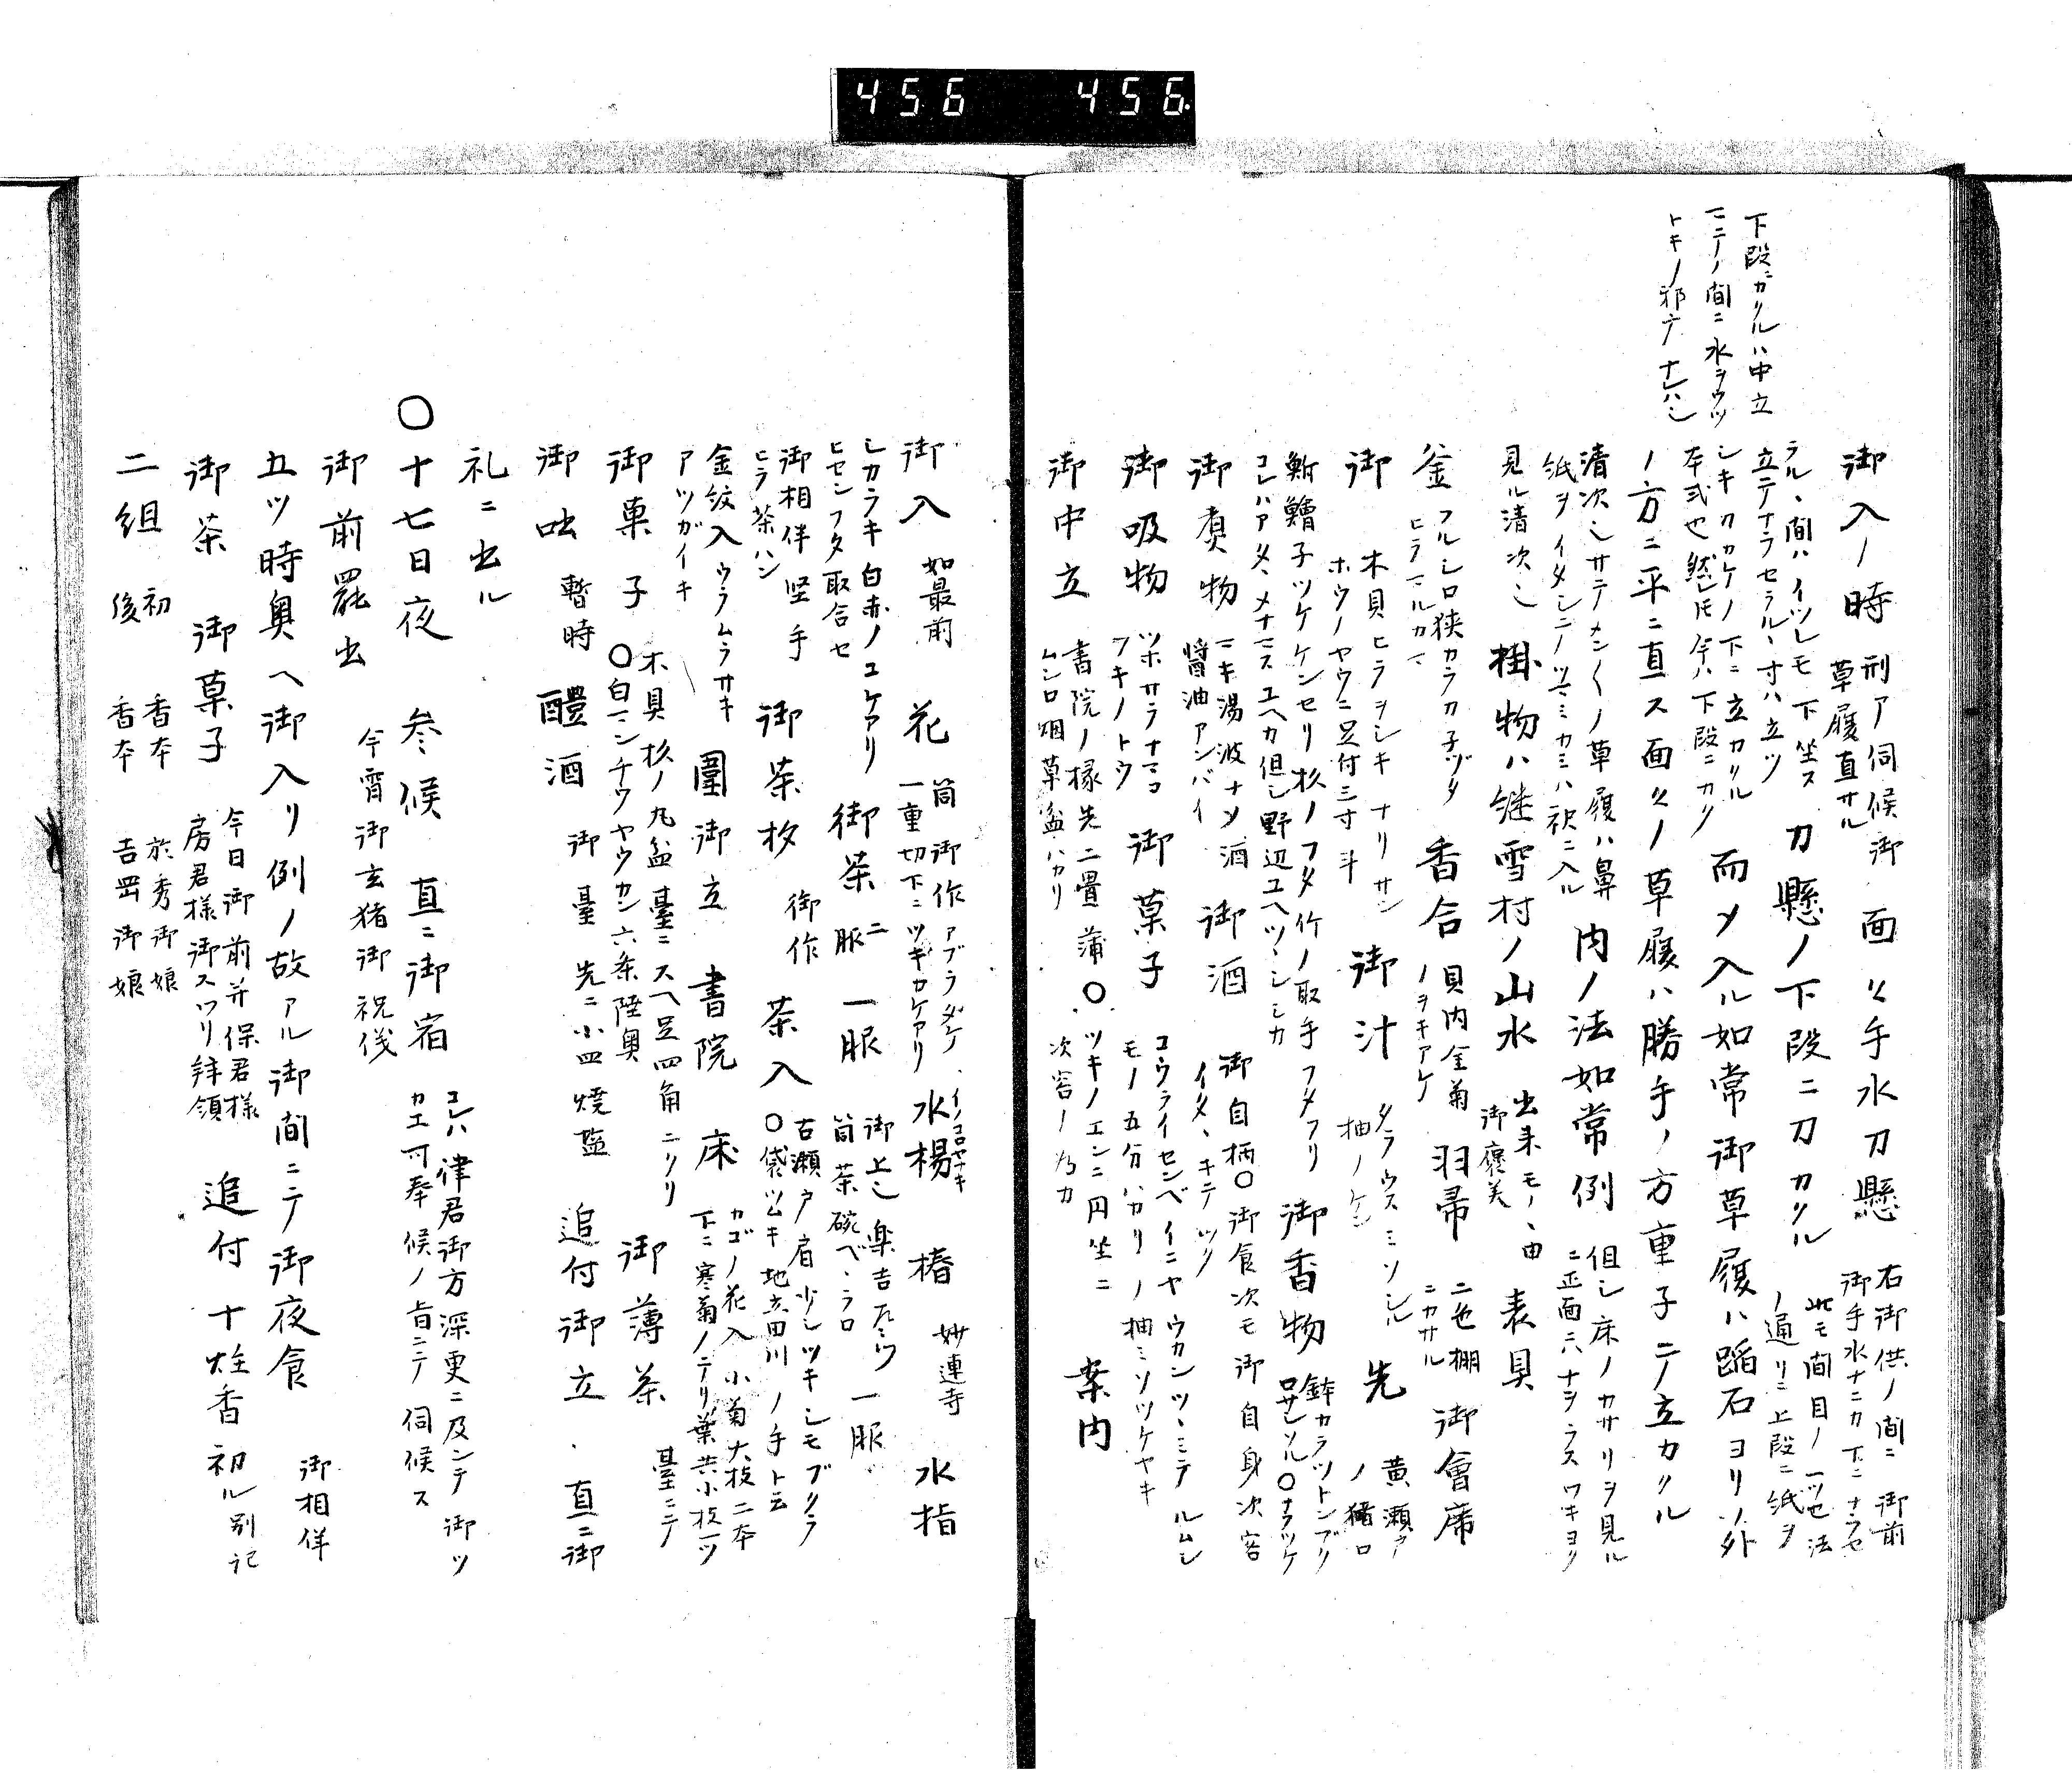 456 456.
下段ニカクルハ中立
マテノ間ニ水ヲウツ
トキノ邪テナレハシ
御入ノ時 刑ア伺候御 面々手水刀懸 右御供ノ間ニ御前
草履直サル 御手水ナニカ下ニナヲセ
ラルヽ間ハイツレモ下坐ス 刀懸ノ下段ニ刀カクル 此モ間目ノ一ツ也法
立テナラセラルヽ寸ハ立ツ ノ通リニ上段ニ紙ヲ
シキカカケノ下ニ立カクル
本式也然レ𪜈今ハ下段ニカク 而メ入ル如常御草履ハ蹈石ヨリ外
ノ方ニ平ニ直ス面々ノ草履ハ勝手ノ方重子ニテ立カクル
清次シサテメン〱ノ草履ハ鼻 内ノ法如常例 但シ床ノカサリヲ見ル
紙ヲイタシ ツヽミカミハ袂ニ入ル ニ正面ニハナヲラスワキヨリ
見ル清次シ 掛物ハ継雪村ノ山水 出来モノヽ由 表具
御褒美
釜 フルシロ狭カラカ子ヅタ 香合 貝内金菊 羽帚 二色棚 御會席
ヒラマルカマ ノヲキアケ ニカサル
御 木具ヒラヲシキナリサン 御汁 タラウスミソシル 先 黄瀬戸
ホウノヤウニ足付三寸斗 柚ノケン ノ猪口
鮒鱠子ツケケンセリ杉ノフタ竹ノ取手フタアリ 御香物 鉢カラツトンブリ
コレハアタヽメナマスユヘカ但シ野辺ユヘツヽシミカ ナラツケ
御煑物 マキ湯波ナシ酒 御酒 御自柄〇御食次モ御自身次客
醤油アンバイ イタヽキテツク
御吸物 ツホサラナマコ 御菓子 コウライセンベイニヤウカンツヽミテルムシ
フキノトウ モノ五分ハカリノ柚ミソツケヤキ
御中立 書院ノ椽先二疊蒲〇ツキノエンニ円坐ニ 案内
ムシロ烟草盆ハカリ 次客ノ為カ
御入 如最前 花 筒御作アブラダケ、イノコロヤナキ 水楊 椿 妙連寺 水指
一重切下ニツキカケアリ
シカラキ白赤ノユケアリ 御茶二服一服 御上ハ楽吉左ヱ 一服
ヒセンフタ取合セ 筒茶碗ベヽラロ
御相伴堅手 御茶杓 御作 茶入 古瀬戸肩少シツキシモブクラ
ヒラ茶ハン 〇袋ツムキ地立田川ノ手ト云
金紋入ウラムラサキ 圍御立 書院 床 カゴノ花入小菊大枝二本
アツガイキ 下ニ寒菊ノテリ葉共小枝一ツ
御菓子 木具杉ノ丸盆臺ニスヘ足四角ニクリ 御薄茶 臺ニテ
〇白マンチウヤウカン六条陸奥
御咄 暫時 醴酒 御臺 先ニ小皿焼塩 追付御立 直ニ御
礼ニ出ル
〇十七日夜 参候 直ニ御宿 コレハ律君御方深更ニ及ンテ御ツ
カエ可奉候ノ旨ニテ伺候ス
御前罷出 今宵御玄猪御祝儀
五ツ時奥ヘ御入リ例ノ故アル御間ニテ御夜食 御相伴
御茶 御菓子 今日御前并保君様 追付十炷香初ル別記
房君様御スワリ拝領
二組 初 香本 於秀御娘
後 香本 吉岡御娘